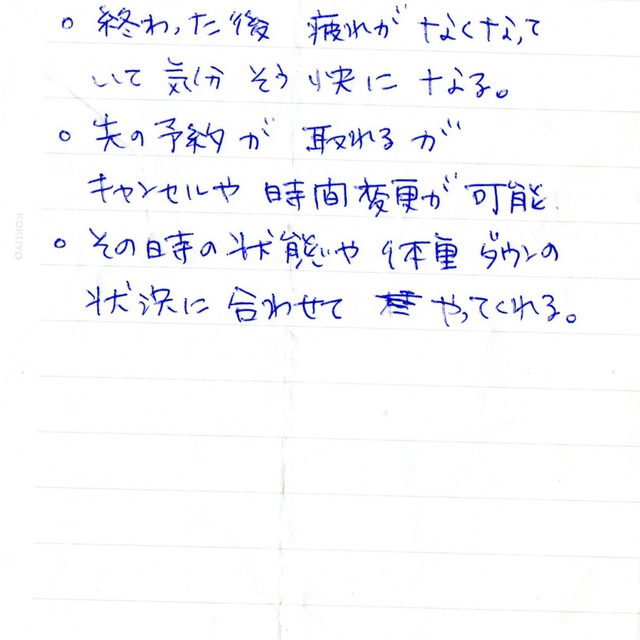 ○ 終わった後 疲れが なくなって
いて 気分 そう快に なる。
○ 先の予約が 取れるが
キャンセルや 時間変更が 可能
○ その時の状態や 体重ダウンの
状況に 合わせて やってくれる。
KOKUYO